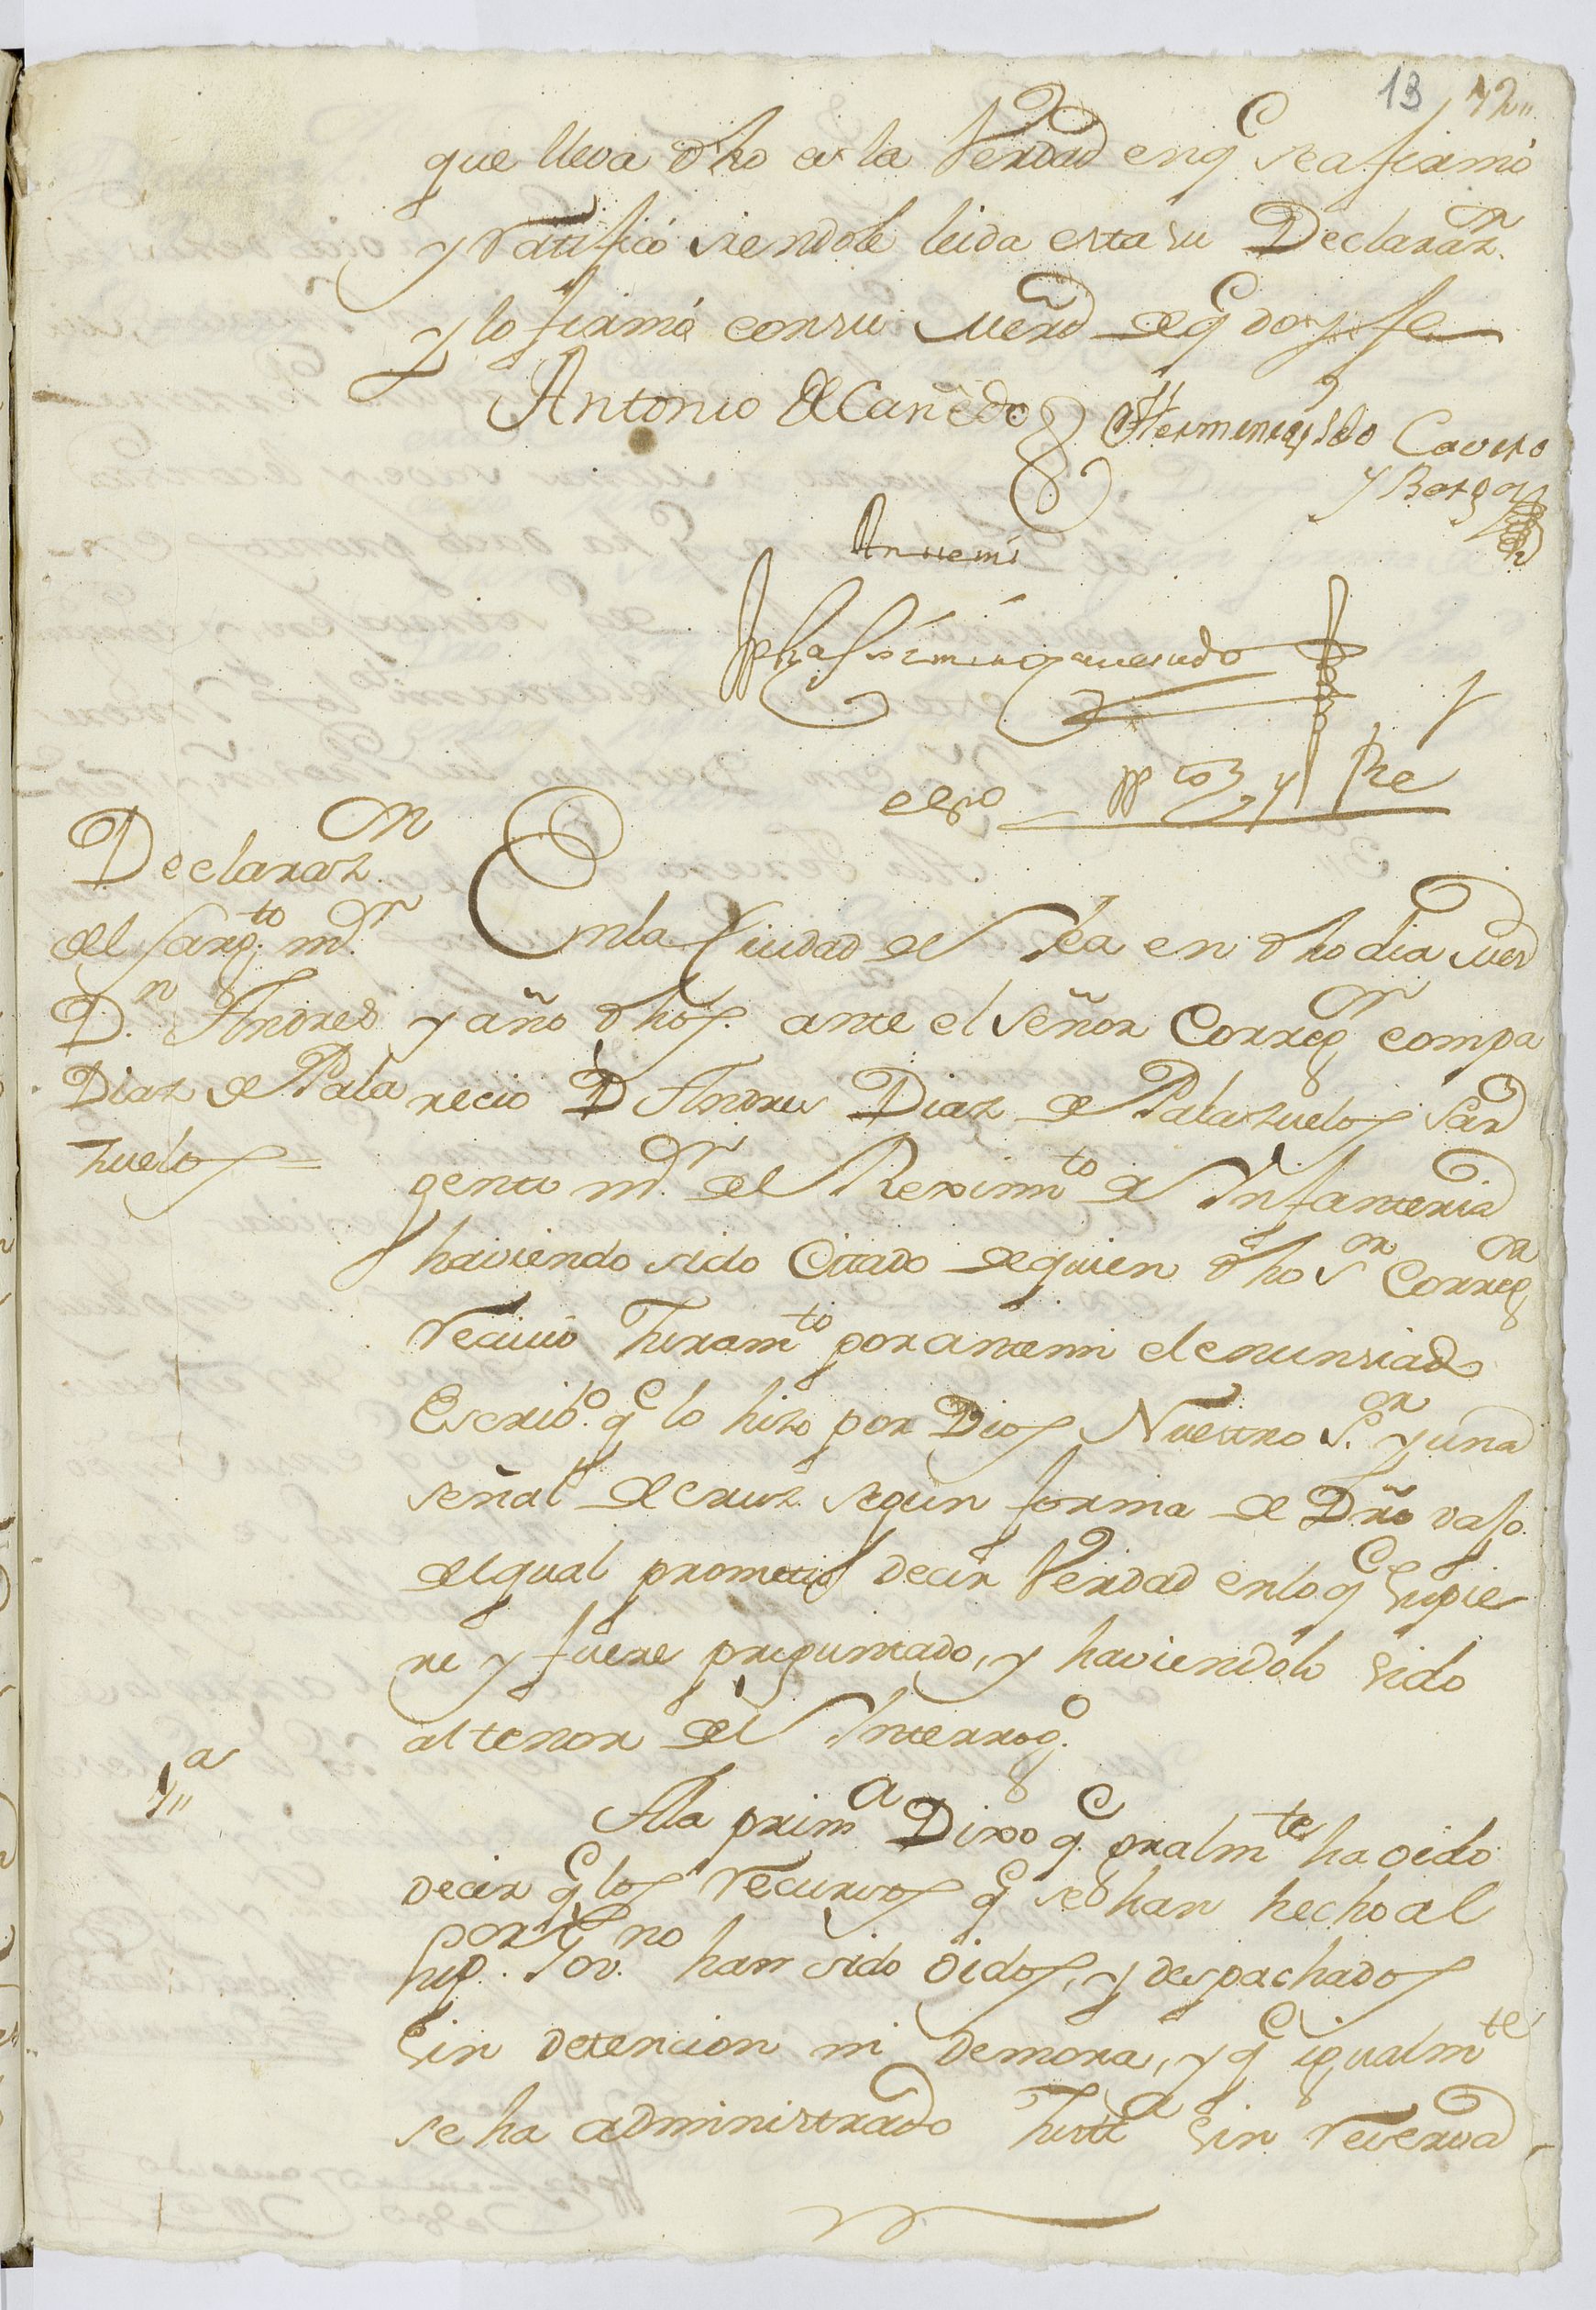 13 12
que lleva dho es la Verdad en q.e se afirmó
y ratificó siendole leida esta su Declaraz.n
y lo firmó con su Merd de q.e doy fe
Antonio Cañedo Hermenegildo Cavero
y Borgoa
Ante mi
Quevedo
esno pp.co y Rl
Declaraz.n
del Sarg.to m.r
D.n Andres
Diaz de Pala
zuelos =
En la Ciudad de Yca en dho dia mes
y año dhos. ante el señor Correg.or compa
recio D Andres Diaz de Palazuelos Sar
gento m.r del Reximto de Infanteria
haviendo sido Citado de quien dho S.or Correg.or
recivió Juram.to por ante mi el enunsiado
Escrib.o q.e lo hizo por Dios Nuestro S.or y una
señal de cruz segun forma de Dro vajo.
del qual prometio decir Verdad en lo q.e supie
re y fuere preguntado, y haviendolo sido
al tenor del Interrog.o
1.a
A la prim.a Dixo q.e gralm.te ha oido
decir q.e los recursos q.e se han hecho al
Sup.or Gov.no han sido oidos, y despachados
sin detencion ni demora, y q.e igualm.te
se ha administrado Just.a sin reserva